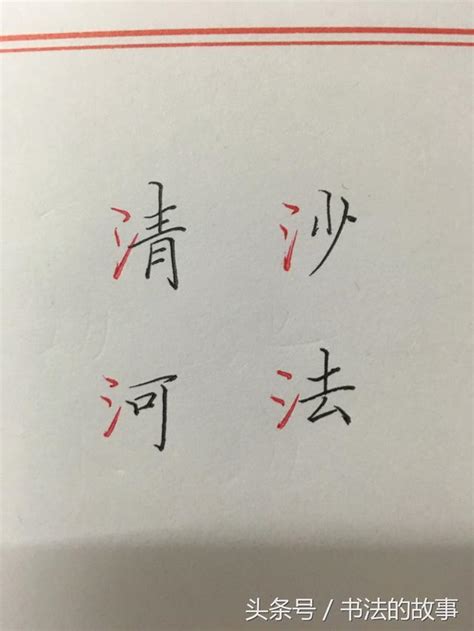 清 沙
河 法
头条号 / 书法的故事